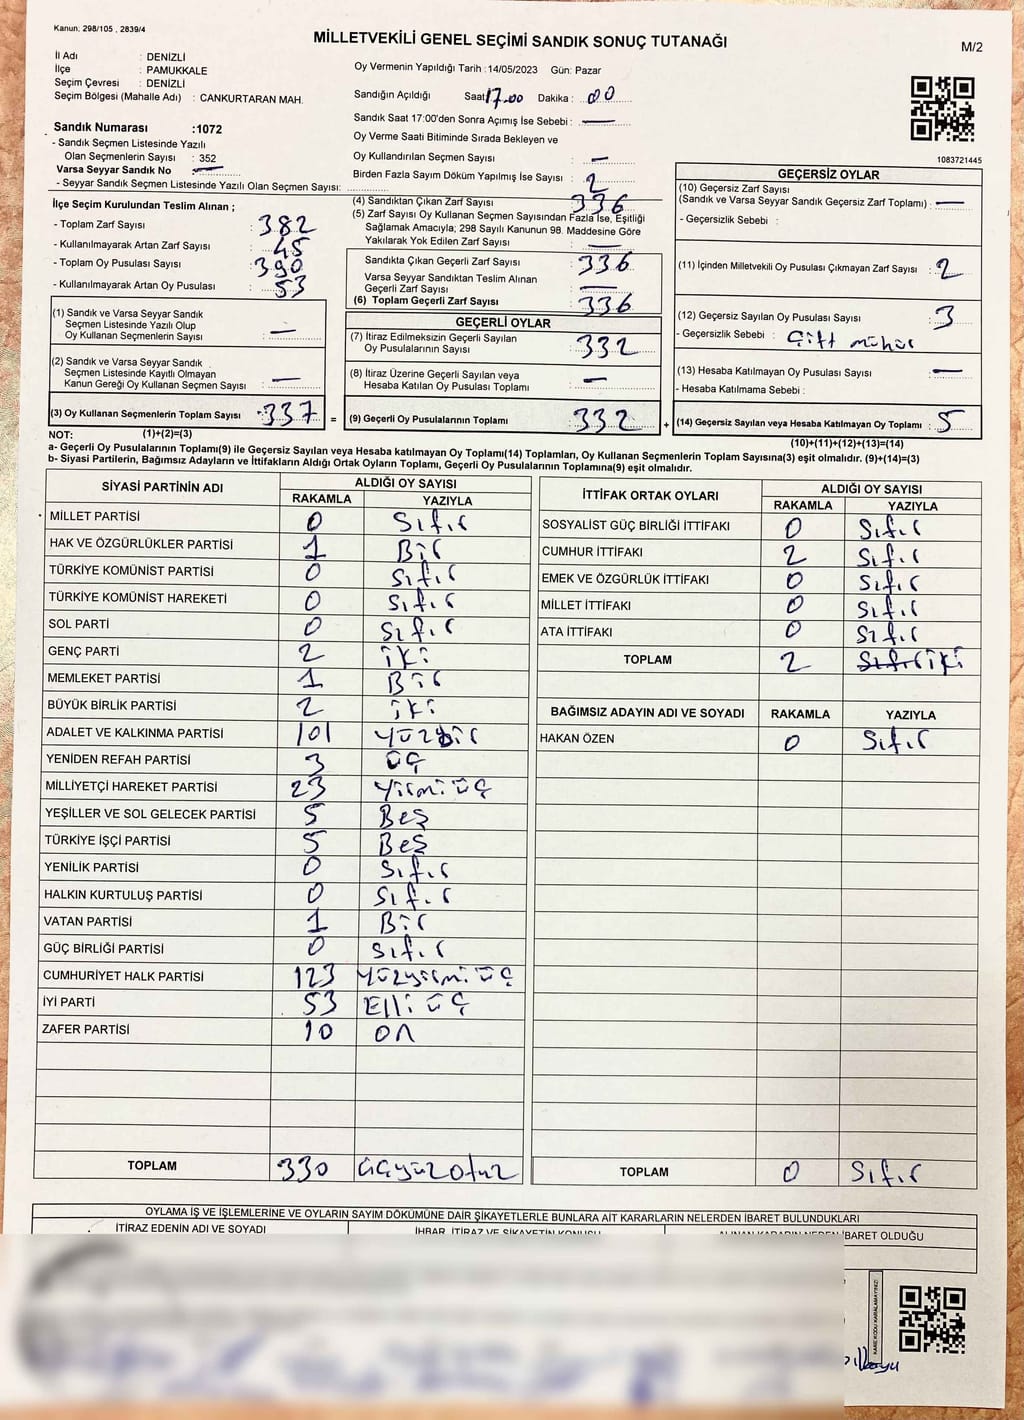 Kanun: 298/105 , 2839/4
MİLLETVEKİLİ GENEL SEÇİMİ SANDIK SONUÇ TUTANAĞI
M/2
İl Adı : DENİZLİ
İlçe : PAMUKKALE
Seçim Çevresi : DENİZLİ
Seçim Bölgesi (Mahalle Adı) : CANKURTARAN MAH.
Sandık Numarası :1072
- Sandık Seçmen Listesinde Yazılı
Olan Seçmenlerin Sayısı : 352
Varsa Seyyar Sandık No : —
- Seyyar Sandık Seçmen Listesinde Yazılı Olan Seçmen Sayısı:
Oy Vermenin Yapıldığı Tarih :14/05/2023 Gün: Pazar
Sandığın Açıldığı Saat 17.00 Dakika : 00
Sandık Saat 17:00'den Sonra Açımış İse Sebebi : —
Oy Verme Saati Bitiminde Sırada Bekleyen ve
Oy Kullandırılan Seçmen Sayısı : —
Birden Fazla Sayım Döküm Yapılmış İse Sayısı : 2
1083721445
İlçe Seçim Kurulundan Teslim Alınan ;
- Toplam Zarf Sayısı : 382
- Kullanılmayarak Artan Zarf Sayısı : 45
- Toplam Oy Pusulası Sayısı : 390
- Kullanılmayarak Artan Oy Pusulası : 53
(1) Sandık ve Varsa Seyyar Sandık
Seçmen Listesinde Yazılı Olup
Oy Kullanan Seçmenlerin Sayısı : —
(2) Sandık ve Varsa Seyyar Sandık
Seçmen Listesinde Kayıtlı Olmayan
Kanun Gereği Oy Kullanan Seçmen Sayısı : —
(3) Oy Kullanan Seçmenlerin Toplam Sayısı : 337 =
(1)+(2)=(3)
(4) Sandıktan Çıkan Zarf Sayısı : 336
(5) Zarf Sayısı Oy Kullanan Seçmen Sayısından Fazla İse, Eşitliği
Sağlamak Amacıyla; 298 Sayılı Kanunun 98. Maddesine Göre
Yakılarak Yok Edilen Zarf Sayısı : —
Sandıkta Çıkan Geçerli Zarf Sayısı : 336
Varsa Seyyar Sandıktan Teslim Alınan
Geçerli Zarf Sayısı : —
(6) Toplam Geçerli Zarf Sayısı : 336
GEÇERLİ OYLAR
(7) İtiraz Edilmeksizin Geçerli Sayılan
Oy Pusulalarının Sayısı : 332
(8) İtiraz Üzerine Geçerli Sayılan veya
Hesaba Katılan Oy Pusulası Toplamı : —
(9) Geçerli Oy Pusulalarının Toplamı : 332 +
GEÇERSİZ OYLAR
(10) Geçersiz Zarf Sayısı
(Sandık ve Varsa Seyyar Sandık Geçersiz Zarf Toplamı) : —
- Geçersizlik Sebebi :
(11) İçinden Milletvekili Oy Pusulası Çıkmayan Zarf Sayısı : 2
(12) Geçersiz Sayılan Oy Pusulası Sayısı : 3
- Geçersizlik Sebebi : Çift mühür
(13) Hesaba Katılmayan Oy Pusulası Sayısı : —
- Hesaba Katılmama Sebebi :
(14) Geçersiz Sayılan veya Hesaba Katılmayan Oy Toplamı : 5
(10)+(11)+(12)+(13)=(14)
NOT:
a- Geçerli Oy Pusulalarının Toplamı(9) ile Geçersiz Sayılan veya Hesaba katılmayan Oy Toplamı(14) Toplamları, Oy Kullanan Seçmenlerin Toplam Sayısına(3) eşit olmalıdır. (9)+(14)=(3)
b- Siyasi Partilerin, Bağımsız Adayların ve İttifakların Aldığı Ortak Oyların Toplamı, Geçerli Oy Pusulalarının Toplamına(9) eşit olmalıdır.
SİYASİ PARTİNİN ADI ALDIĞI OY SAYISI
RAKAMLA YAZIYLA
MİLLET PARTİSİ 0 Sıfır
HAK VE ÖZGÜRLÜKLER PARTİSİ 1 Bir
TÜRKİYE KOMÜNİST PARTİSİ 0 Sıfır
TÜRKİYE KOMÜNİST HAREKETİ 0 Sıfır
SOL PARTİ 0 Sıfır
GENÇ PARTİ 2 iki
MEMLEKET PARTİSİ 1 Bir
BÜYÜK BİRLİK PARTİSİ 2 iki
ADALET VE KALKINMA PARTİSİ 101 yüzbir
YENİDEN REFAH PARTİSİ 3 üç
MİLLİYETÇİ HAREKET PARTİSİ 23 Yirmi üç
YEŞİLLER VE SOL GELECEK PARTİSİ 5 Beş
TÜRKİYE İŞÇİ PARTİSİ 5 Beş
YENİLİK PARTİSİ 0 Sıfır
HALKIN KURTULUŞ PARTİSİ 0 Sıfır
VATAN PARTİSİ 1 Bir
GÜÇ BİRLİĞİ PARTİSİ 0 Sıfır
CUMHURİYET HALK PARTİSİ 123 Yüzyirmi üç
İYİ PARTİ 53 Elli üç
ZAFER PARTİSİ 10 on
TOPLAM 330 üçyüz otuz
İTTİFAK ORTAK OYLARI ALDIĞI OY SAYISI
RAKAMLA YAZIYLA
SOSYALİST GÜÇ BİRLİĞİ İTTİFAKI 0 Sıfır
CUMHUR İTTİFAKI 2 Sıfır
EMEK VE ÖZGÜRLÜK İTTİFAKI 0 Sıfır
MİLLET İTTİFAKI 0 Sıfır
ATA İTTİFAKI 0 Sıfır
TOPLAM 2 Sıfır iki
BAĞIMSIZ ADAYIN ADI VE SOYADI RAKAMLA YAZIYLA
HAKAN ÖZEN 0 Sıfır
TOPLAM 0 Sıfır
OYLAMA İŞ VE İŞLEMLERİNE VE OYLARIN SAYIM DÖKÜMÜNE DAİR ŞİKAYETLERLE BUNLARA AİT KARARLARIN NELERDEN İBARET BULUNDUKLARI
İTİRAZ EDENİN ADI VE SOYADI İHBAR, İTİRAZ VE ŞİKAYETİN KONUSU ALINAN KARARIN NEDEN İBARET OLDUĞU
KARE KODU KARALAMAYINIZ!